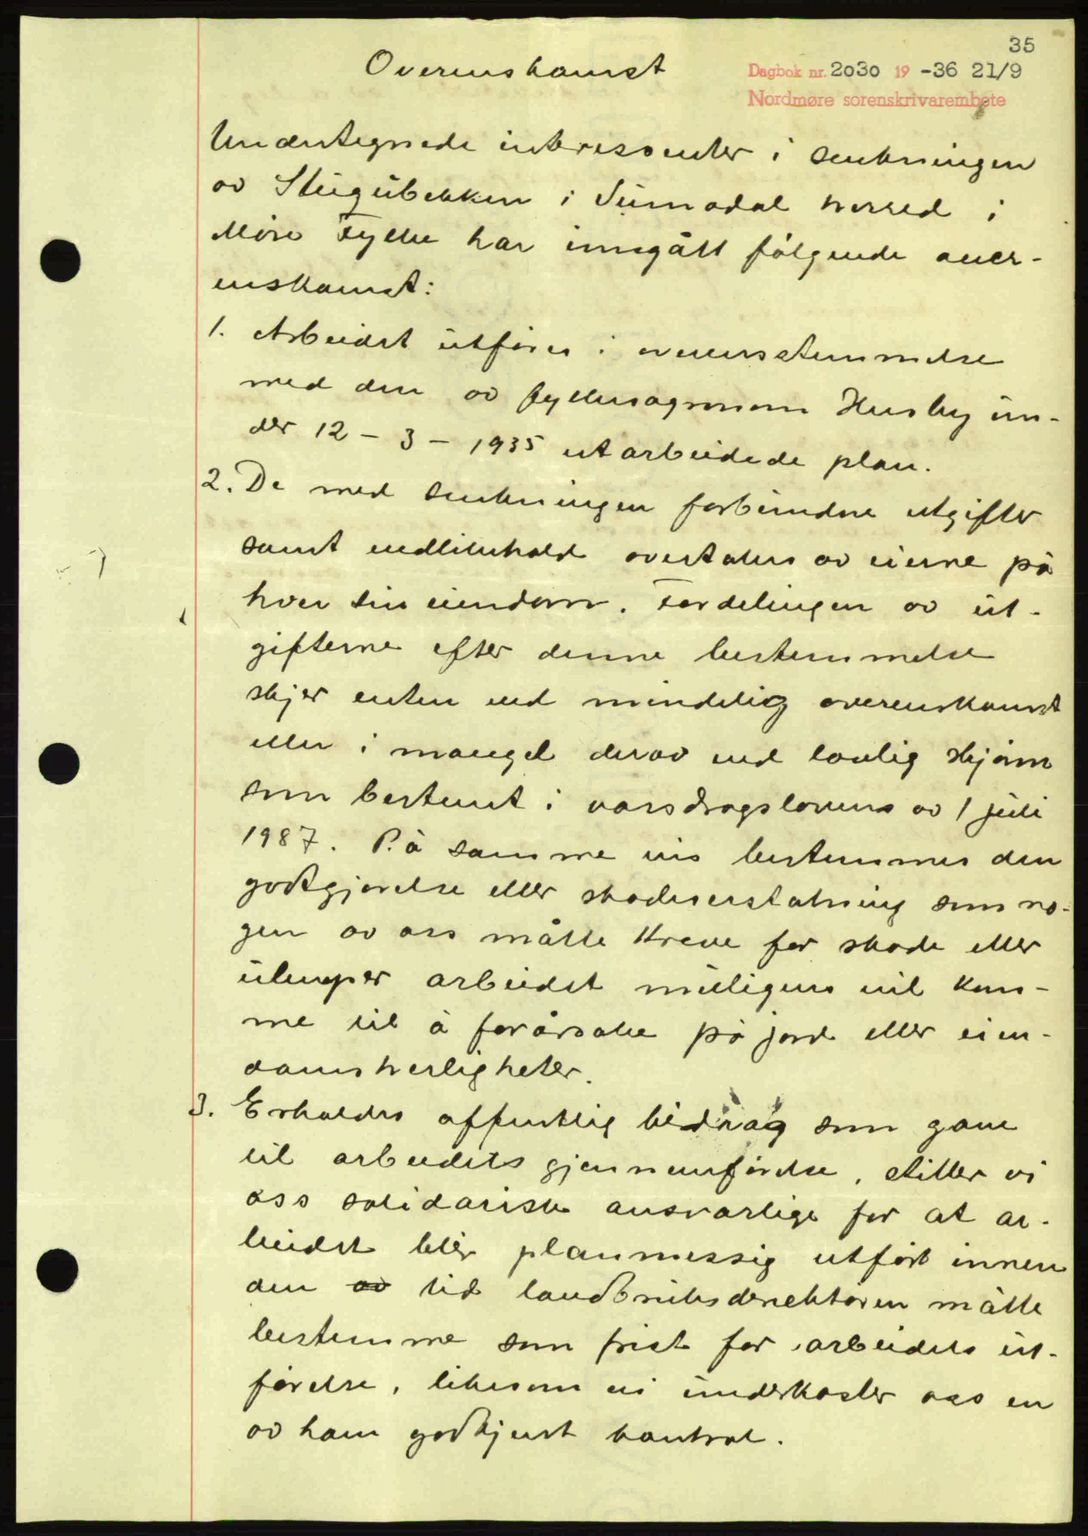 35
Overenskomst
Dagbok nr. 2030 19 -36 21/9
Nordmøre sorenskrivarembete
Undertegnede interessenter i senkningen
av Stigubekken i Surnadal herred i
Møre Fylke har inngått følgende over-
enskomst:
1. Arbeidet utføres i overensstemmelse
med den av fylkesagronom Husby un-
der 12 - 3 - 1935 utarbeidede plan.
2. De med senkningen forbundne utgifter
samt vedlikehold overtakes av eierne på
hver sin eiendom. Fordelingen av ut-
gifterne efter denne bestemmelse
skjer enten ved mindelig overenskomst
eller i mangel derav ved lovlig skjønn
som bestemt i vassdragslovens av 1 juli
1987. På samme vis bestemmes den
godtgjørelse eller skadeserstatning som no-
gen av oss måtte kreve for skade eller
ulemper arbeidet muligens vil kom-
me til å forårsake på jord eller eien-
domsherligheter.
3. Erholdes offentlig bidrag som gave
til arbeidets gjennemførelse, stiller vi
oss solidarisk ansvarlige for at ar-
beidet blir planmessig utført innen
den av tid landbruksdirektøren måtte
bestemme som frist for arbeidets ut-
førelse, likesom vi underkaster oss en
av ham godkjent kontrol.